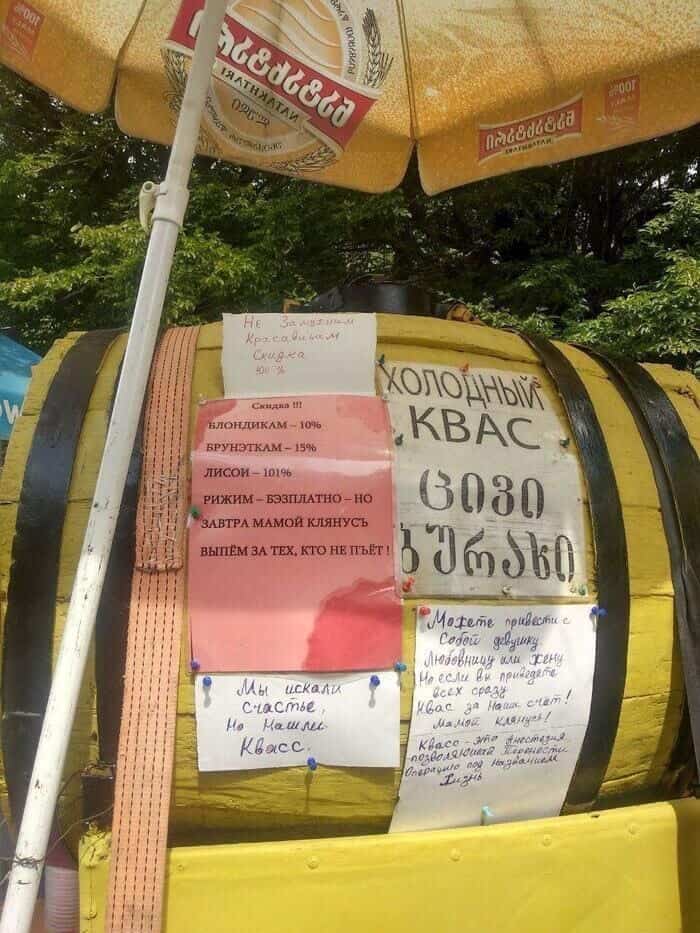 100%
ნატახტარი
NATAKHTARI
ლუდი
ნატახტარი
NATAKHTARI
100%
Не Замужним
Красавицам
Скидка
100 %
Скидка !!!
БЛОНДИКАМ – 10%
БРУНЭТКАМ – 15%
ЛИСОИ – 101%
РИЖИМ – БЭЗПЛАТНО – НО
ЗАВТРА МАМОЙ КЛЯНУСЪ
ВЫПЁМ ЗА ТЕХ, КТО НЕ ПЪЁТ !
ХОЛОДНЫЙ
КВАС
ცივი
ბურახი
Мы искали
счастье,
Но Нашли
Квасс.
Можете привести с
Собой девушку
Любовницу или жену
Но если вы приведёте
всех сразу
Квас за Наш счёт!
Мамой Клянусь!
Квасс – это Анестезия
позволяющая Перенести
Операцию под названием
Жизнь